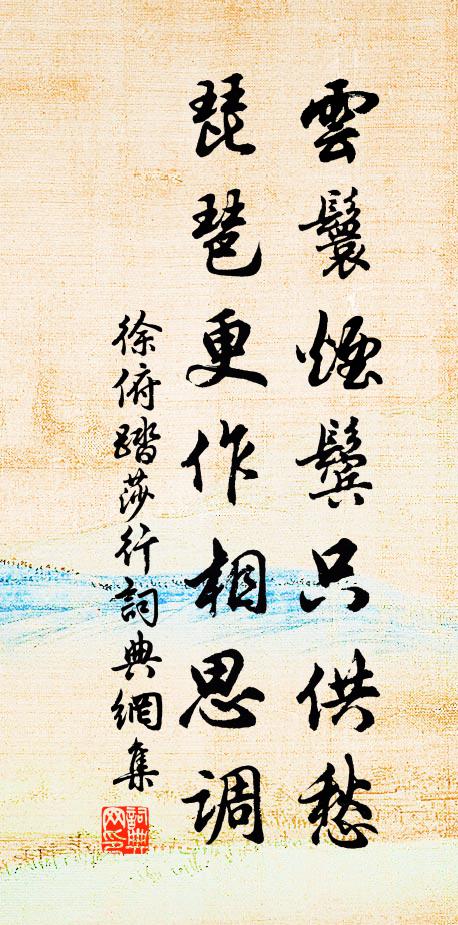 雲鬟煙鬢只供愁
琵琶更作相思調
徐俯踏莎行詞典網集
詞典網印